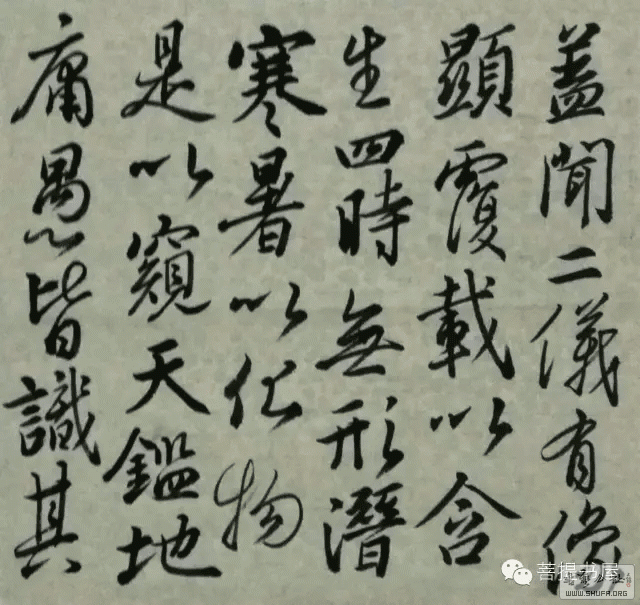 蓋聞二儀有像
顯覆載以含
生四時無形潛
寒暑以化物
是以窺天鑑地
庸愚皆識其
菩提书屋
WWW.SHUFA.ORG